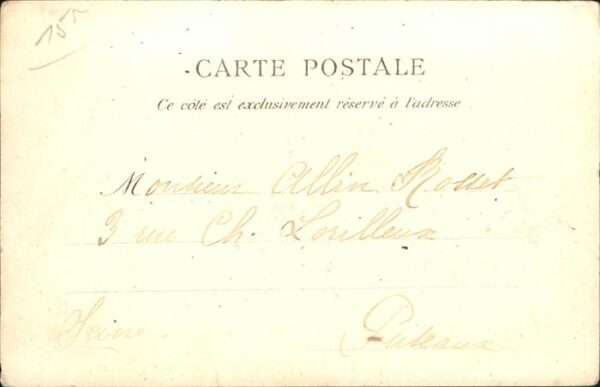 15
CARTE POSTALE
Ce côté est exclusivement réservé à l'adresse
Monsieur Allin Rosset
3 rue Ch. Lorilleux
Seine
Puteaux